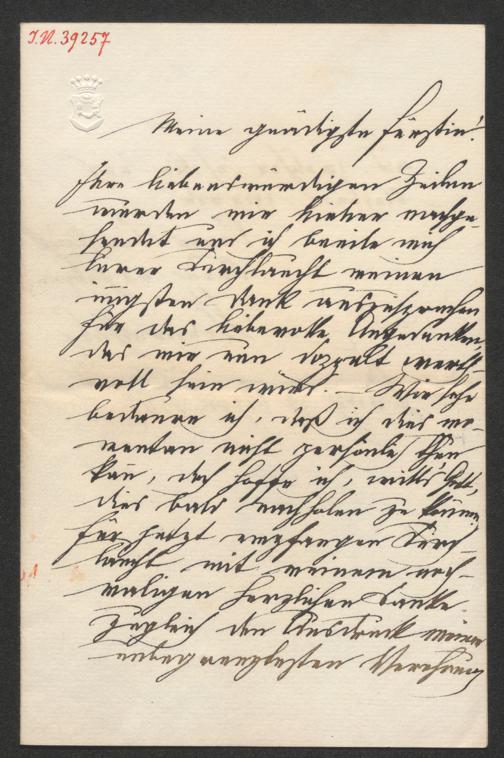 I.N. 39257
Meine gnädigste Fürstin!
Ihre liebenswürdigen Zeilen
wurden mir hieher nachge-
sendet und ich beeile mich
Eurer Durchlaucht meinen
innigsten Dank auszusprechen
für das liebevolle Angedenken,
das mir nun doppelt werth-
voll sein wird. – Wie sehr
bedaure ich, daß ich dies mo-
mentan nicht persönlich thun
kan, doch hoffe ich, will's Gott,
dies bald nachholen zu können.
Für jetzt empfangen Durch-
laucht mit meinem noch-
maligen herzlichen Danke
zugleich den Ausdruck meiner
unbegrenztesten Verehrung